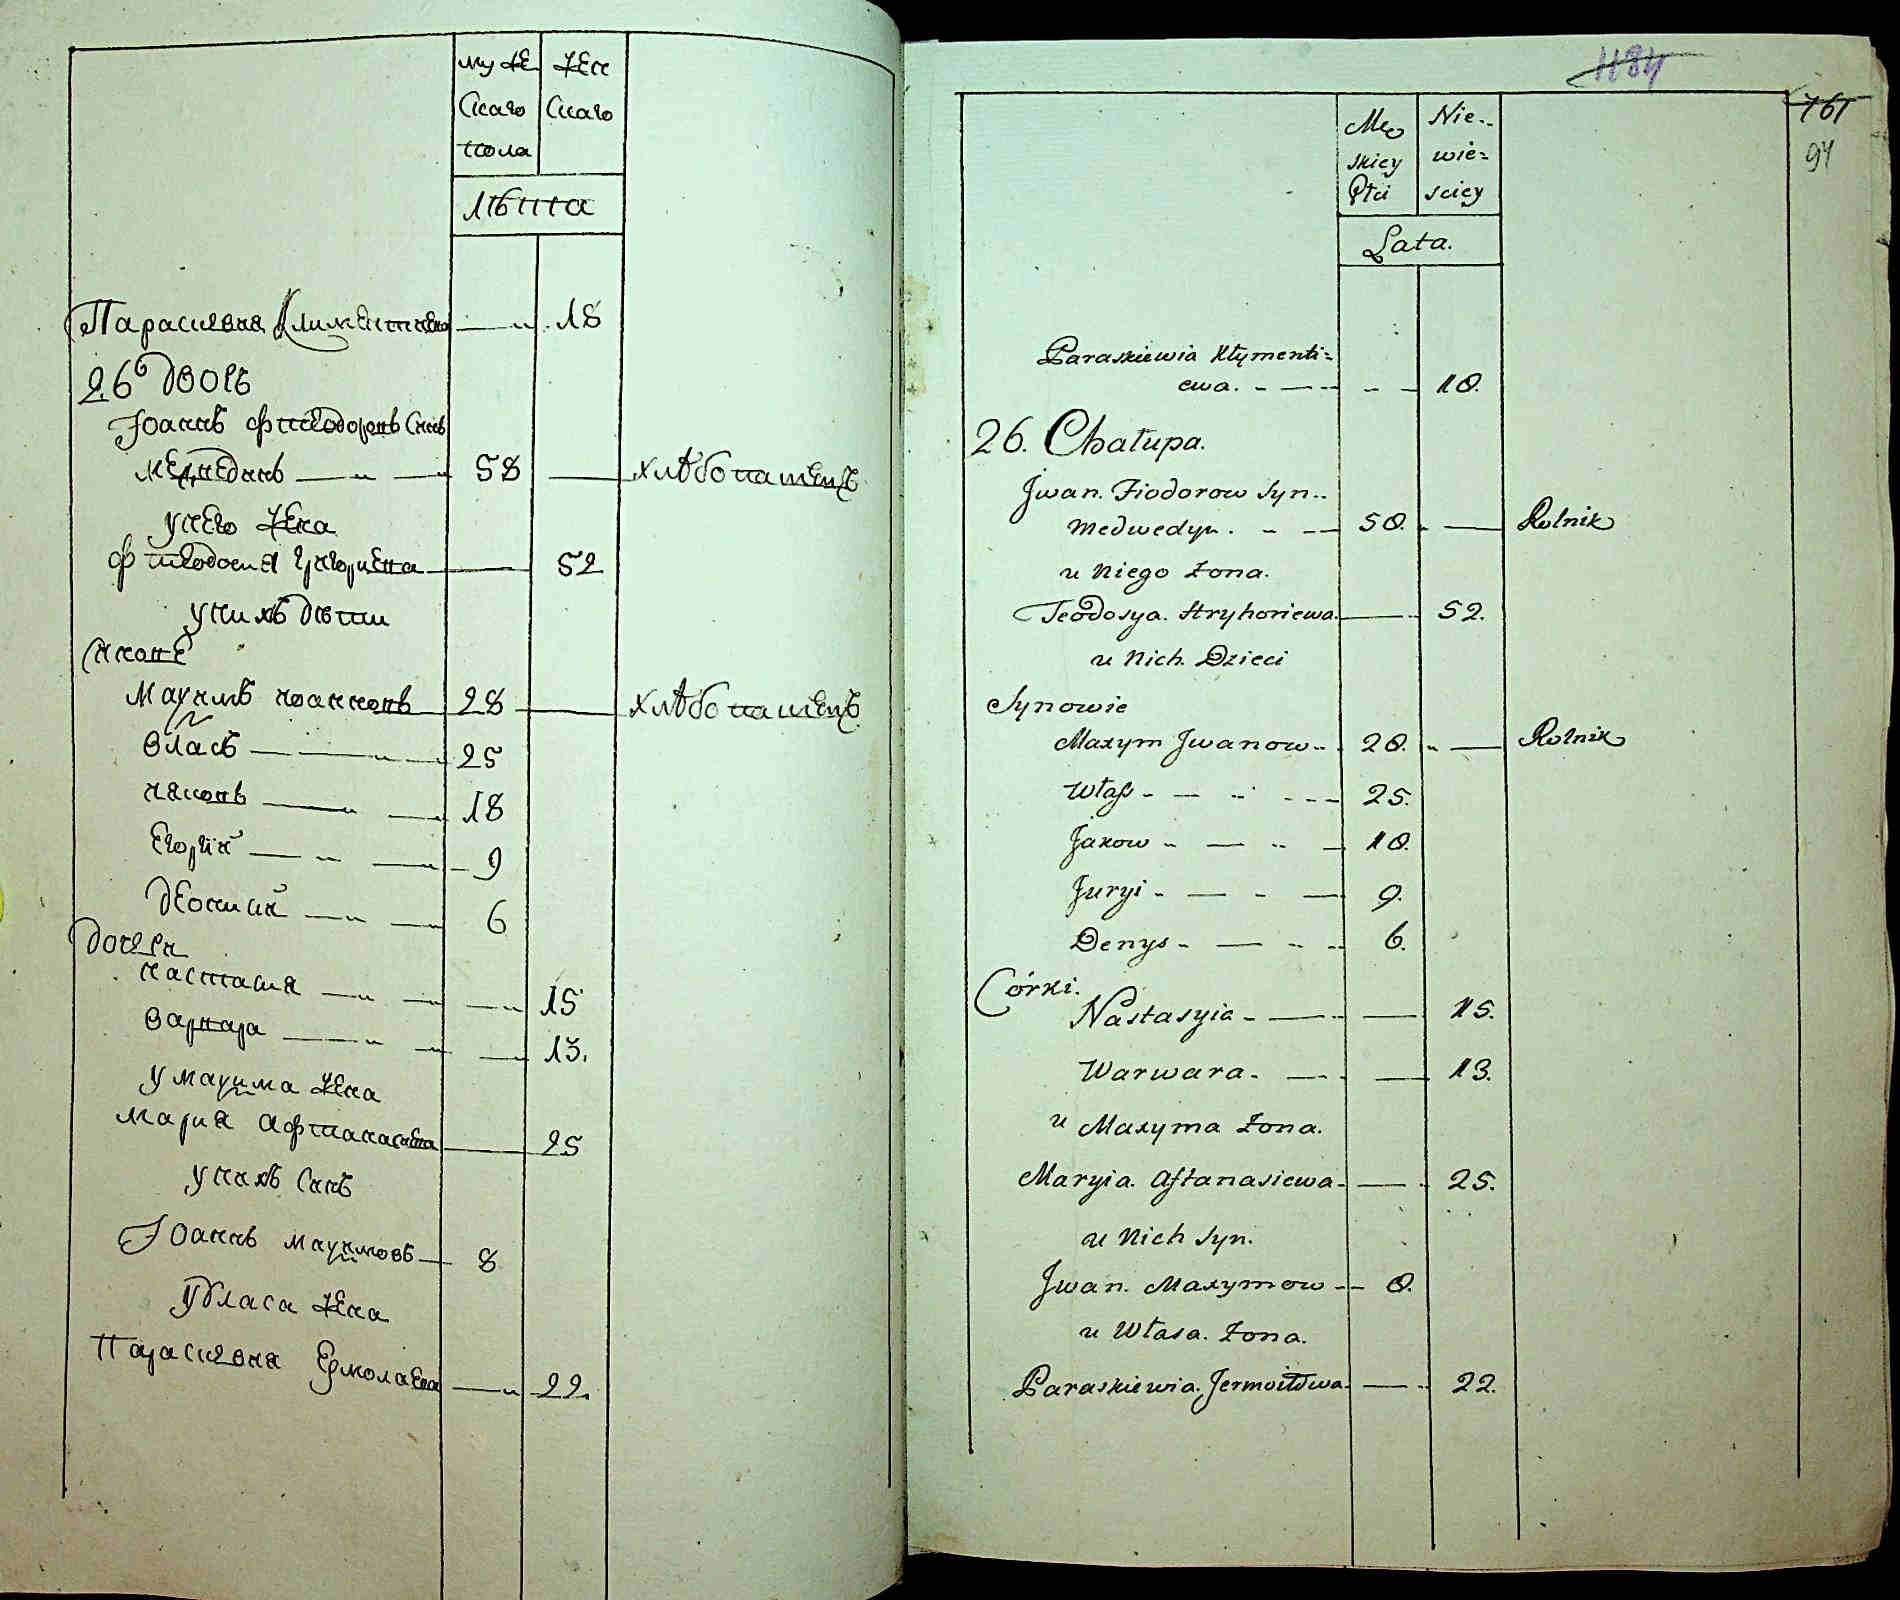 муже
скаго
пола
жен
скаго
лѣта
Параскевия Климентиева 18
26 дворъ
Іоаннъ Фтеодоровъ синъ
Медвединъ 58 хлѣбопашецъ
у него жена
Фтеодосия Григориева 52
у нихъ дѣти
синове
Махимъ Иоанновъ 28 хлѣбопашецъ
Власъ 25
Иаковъ 18
Егорий 9
Деонисий 6
дочери
Настасия 15
Варвара 13.
у Махима жена
Мария Афтанасиева 25
у нихъ синъ
Іоаннъ Махимовъ 8
у Власа жена
Параскевия Ермолаева 22.
1184
761
94
Męs
skiey
Płci
Nie-
wie-
sciey
Lata.
Paraskiewia Kłymenti-
ewa. 18.
26. Chałupa.
Jwan. Fiodorow Syn
Medwedyn. 58. Rolnik
u Niego Żona.
Teodosya. Hryhoriewa. 52.
u Nich. Dzieci
Synowie
Maxym Jwanow 28. Rolnik
Własß 25.
Jakow 18.
Juryi 9.
Denys 6.
Córki.
Nastasyia 15.
Warwara. 13.
u Maxyma Żona.
Maryia. Aftanasiewa 25.
u Nich Syn.
Jwan. Maxymow 8.
u Własa. Żona.
Paraskiewia. Jermołowa 22.